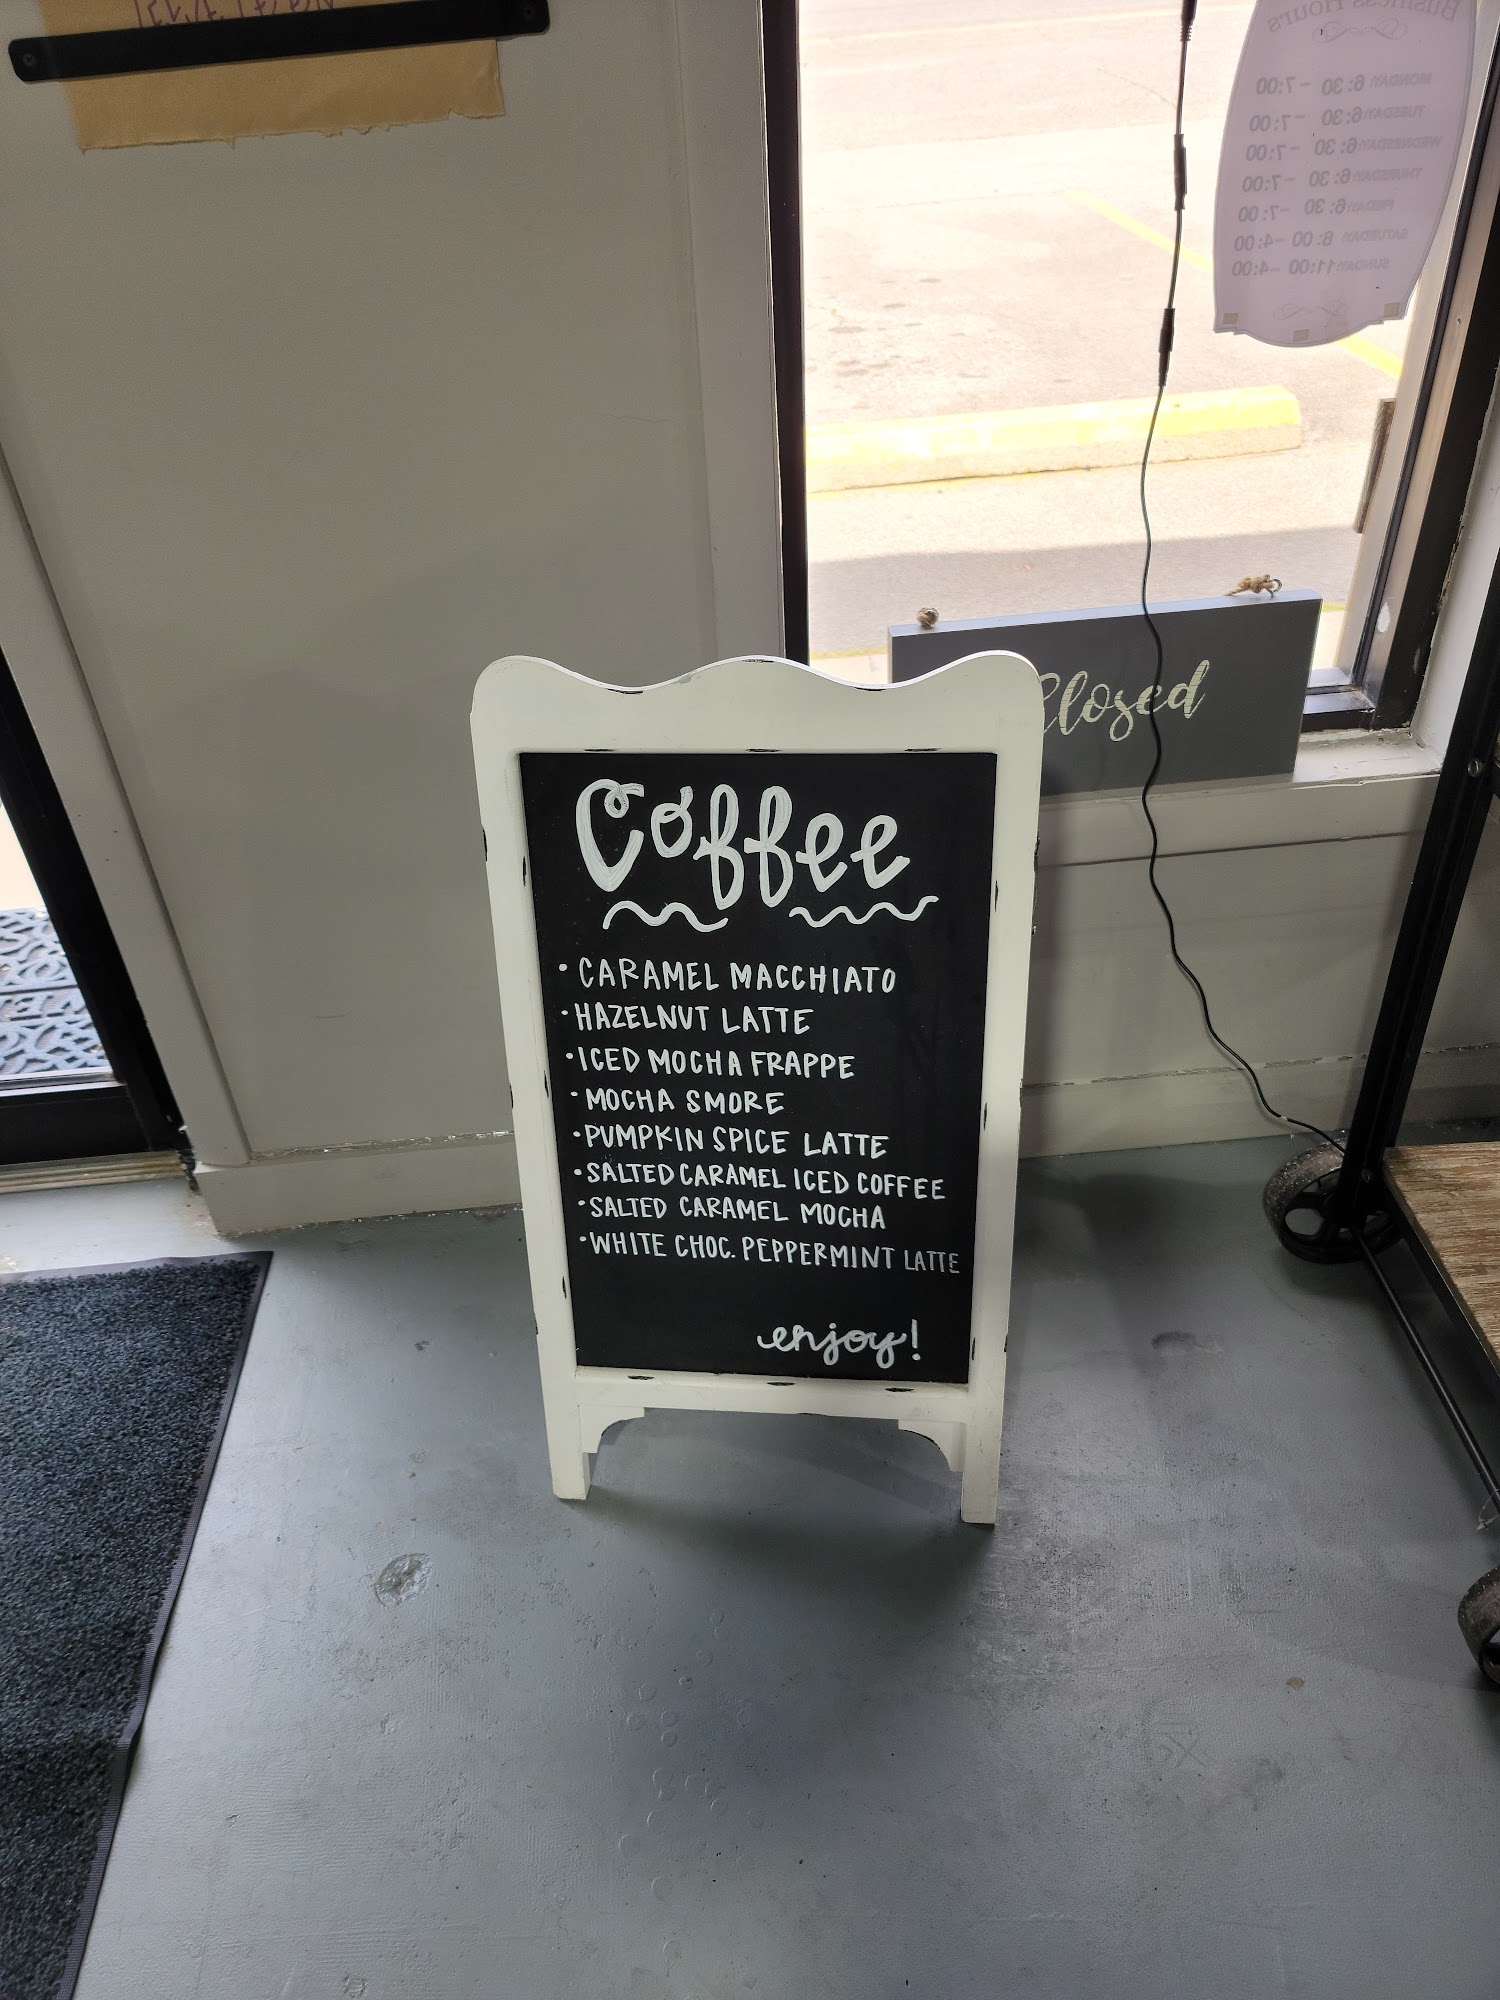 Business Hours
MONDAY 6:30 - 7:00
TUESDAY 6:30 - 7:00
WEDNESDAY 6:30 - 7:00
THURSDAY 6:30 - 7:00
FRIDAY 6:30 - 7:00
SATURDAY 8:00 - 4:00
SUNDAY 11:00 - 4:00
Closed
Coffee
• CARAMEL MACCHIATO
• HAZELNUT LATTE
• ICED MOCHA FRAPPE
• MOCHA SMORE
• PUMPKIN SPICE LATTE
• SALTED CARAMEL ICED COFFEE
• SALTED CARAMEL MOCHA
• WHITE CHOC. PEPPERMINT LATTE
enjoy!